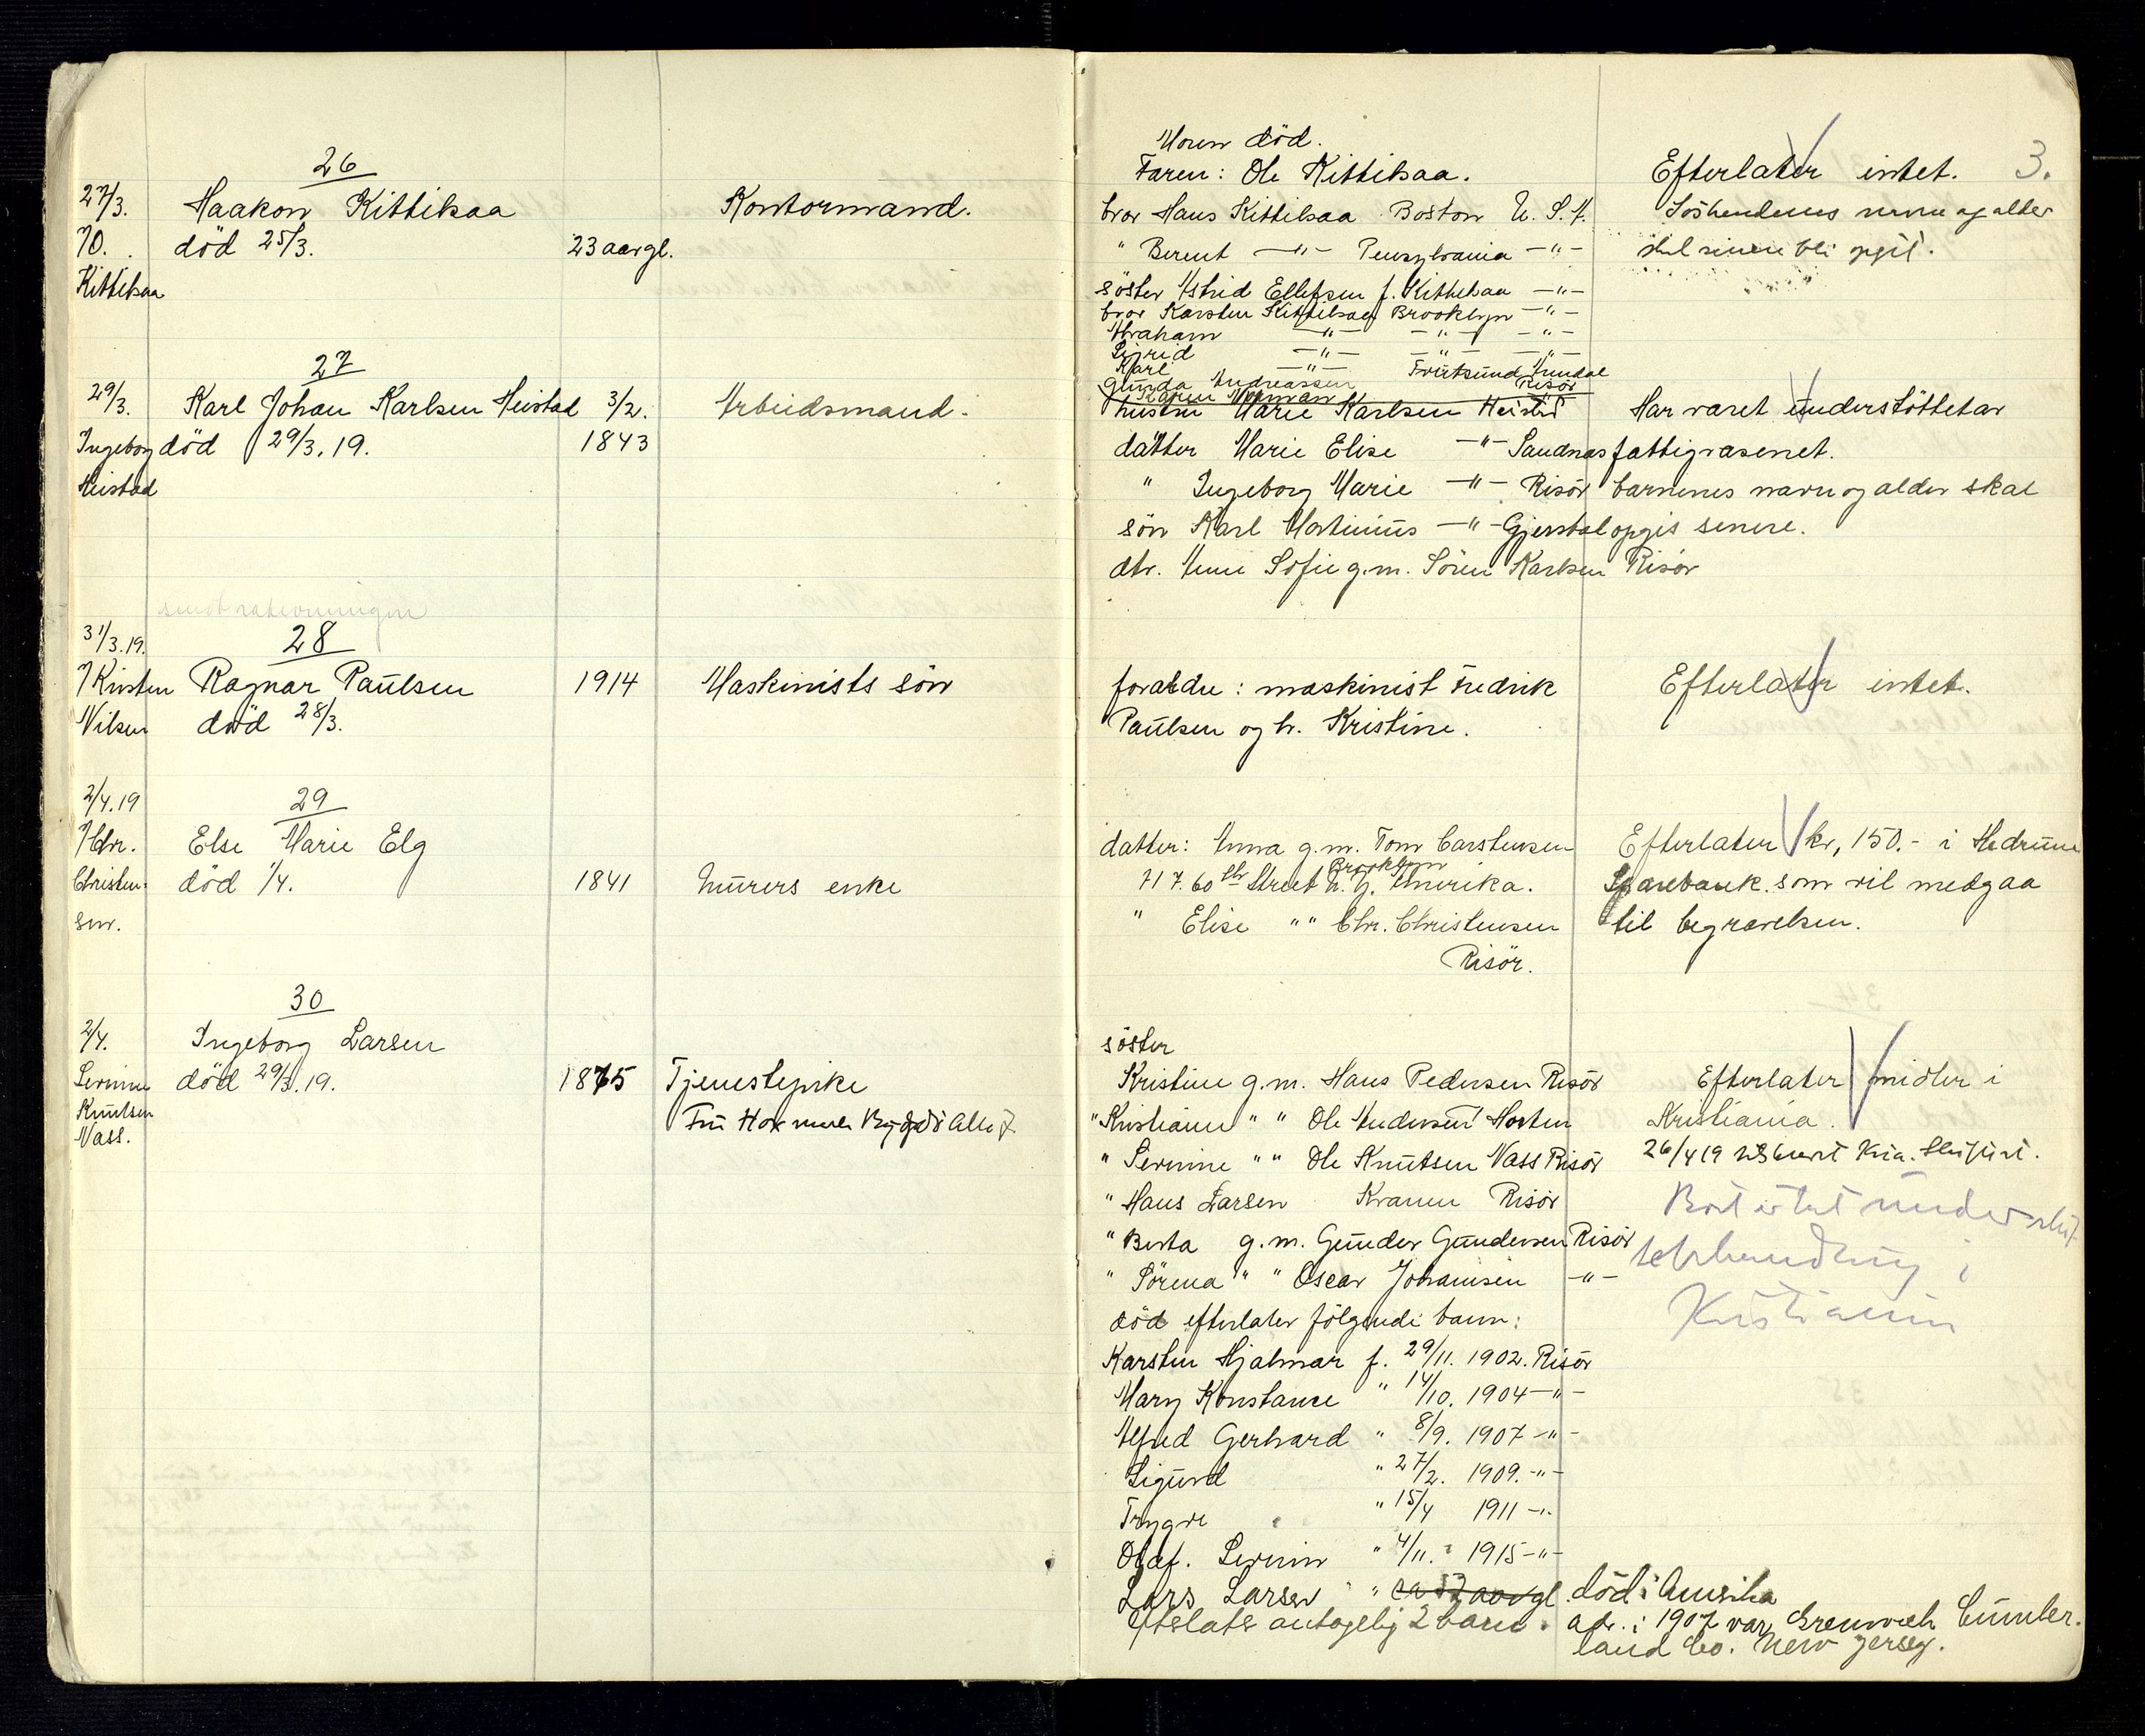 26
27/3. Haakon Kittilsaa Kontormand.
10. død 25/3. 23 aar gl.
Kittilsaa
27
29/3. Karl Johan Karlsen Heistad 3/2. Arbeidsmand.
Ingeborg død 29/3.19. 1843
Heistad
31/3.19. 28
Kirsten Ragnar Paulsen 1914 Maskinists søn
Nilsen død 28/3.
2/4.19 29
Chr. Else Marie Elg
Christen- død 1/4. 1841 Murers enke
sen.
30
2/4. Ingeborg Larsen
Serine død 29/3.19. 1875 Tjenestepike
Knutsen Fru
Vass.
3.
Moren død.
Faren: Ole Kittilsaa. Efterlater intet.
bror Hans Kittilsaa Boston U.S.A. Søskendenes navne og alder
" Berent —"— Pensylvania —"— skal senere bli opgit.
søster Astrid Ellefsen f. Kittilsaa —"—
bror Karsten Kittilsaa Brooklyn —"—
Abraham —"— —"— —"—
Sigrid —"— —"— —"—
Karl —"—
Gunda Andreassen Risør
hustru Marie Karlsen Heistad Har været understøttet av
datter Marie Elise —"— Sandnes fattigvæsenet.
" Ingeborg Marie —"— Risør barnenes navn og alder skal
søn Karl Martinius —"— Gjerstad opgis senere.
dtr. Anne Sofie g.m. Søren Karlsen Risør
forældre: maskinist Fredrik Efterlater intet.
Paulsen og h. Kristine.
datter: Anna g.m. Tom Carstensen Efterlater kr, 150.- i Hedrum
Brooklyn
717. 60th Street N.Y. Amerika. Sparebank. som vil medgaa
" Elise " " Chr. Christensen til begravelsen.
Risør.
søster
Kristine g.m. Hans Pedersen Risør Efterlater midler i
" Kristiane " " Ole Andersen Horten Kristiania.
" Serine " " Ole Knutsen Vass Risør 26/4 19
" Hans Larsen Kranen Risør
" Berta g.m. Gunder Gundersen Risør
" Sørena " " Oscar Johansen —"—
Kristiania
død efterlater følgende barn:
Karsten Hjalmar f. 29/11. 1902. Risør
Mary Konstance " 14/10. 1904 —"—
Alfred Gerhard " 8/9. 1907 —"—
Sigurd " 27/2. 1909. —"—
Trygve " 15/4 1911 —"—
Olaf. Servin " 4/11. 1915 —"—
Lars Larsen " ca 52 aar gl. død i Amerika
Efterlater antagelig 2 barn. adr. i 1907 var Greenwich Cumber-
land Co. New Jersey.